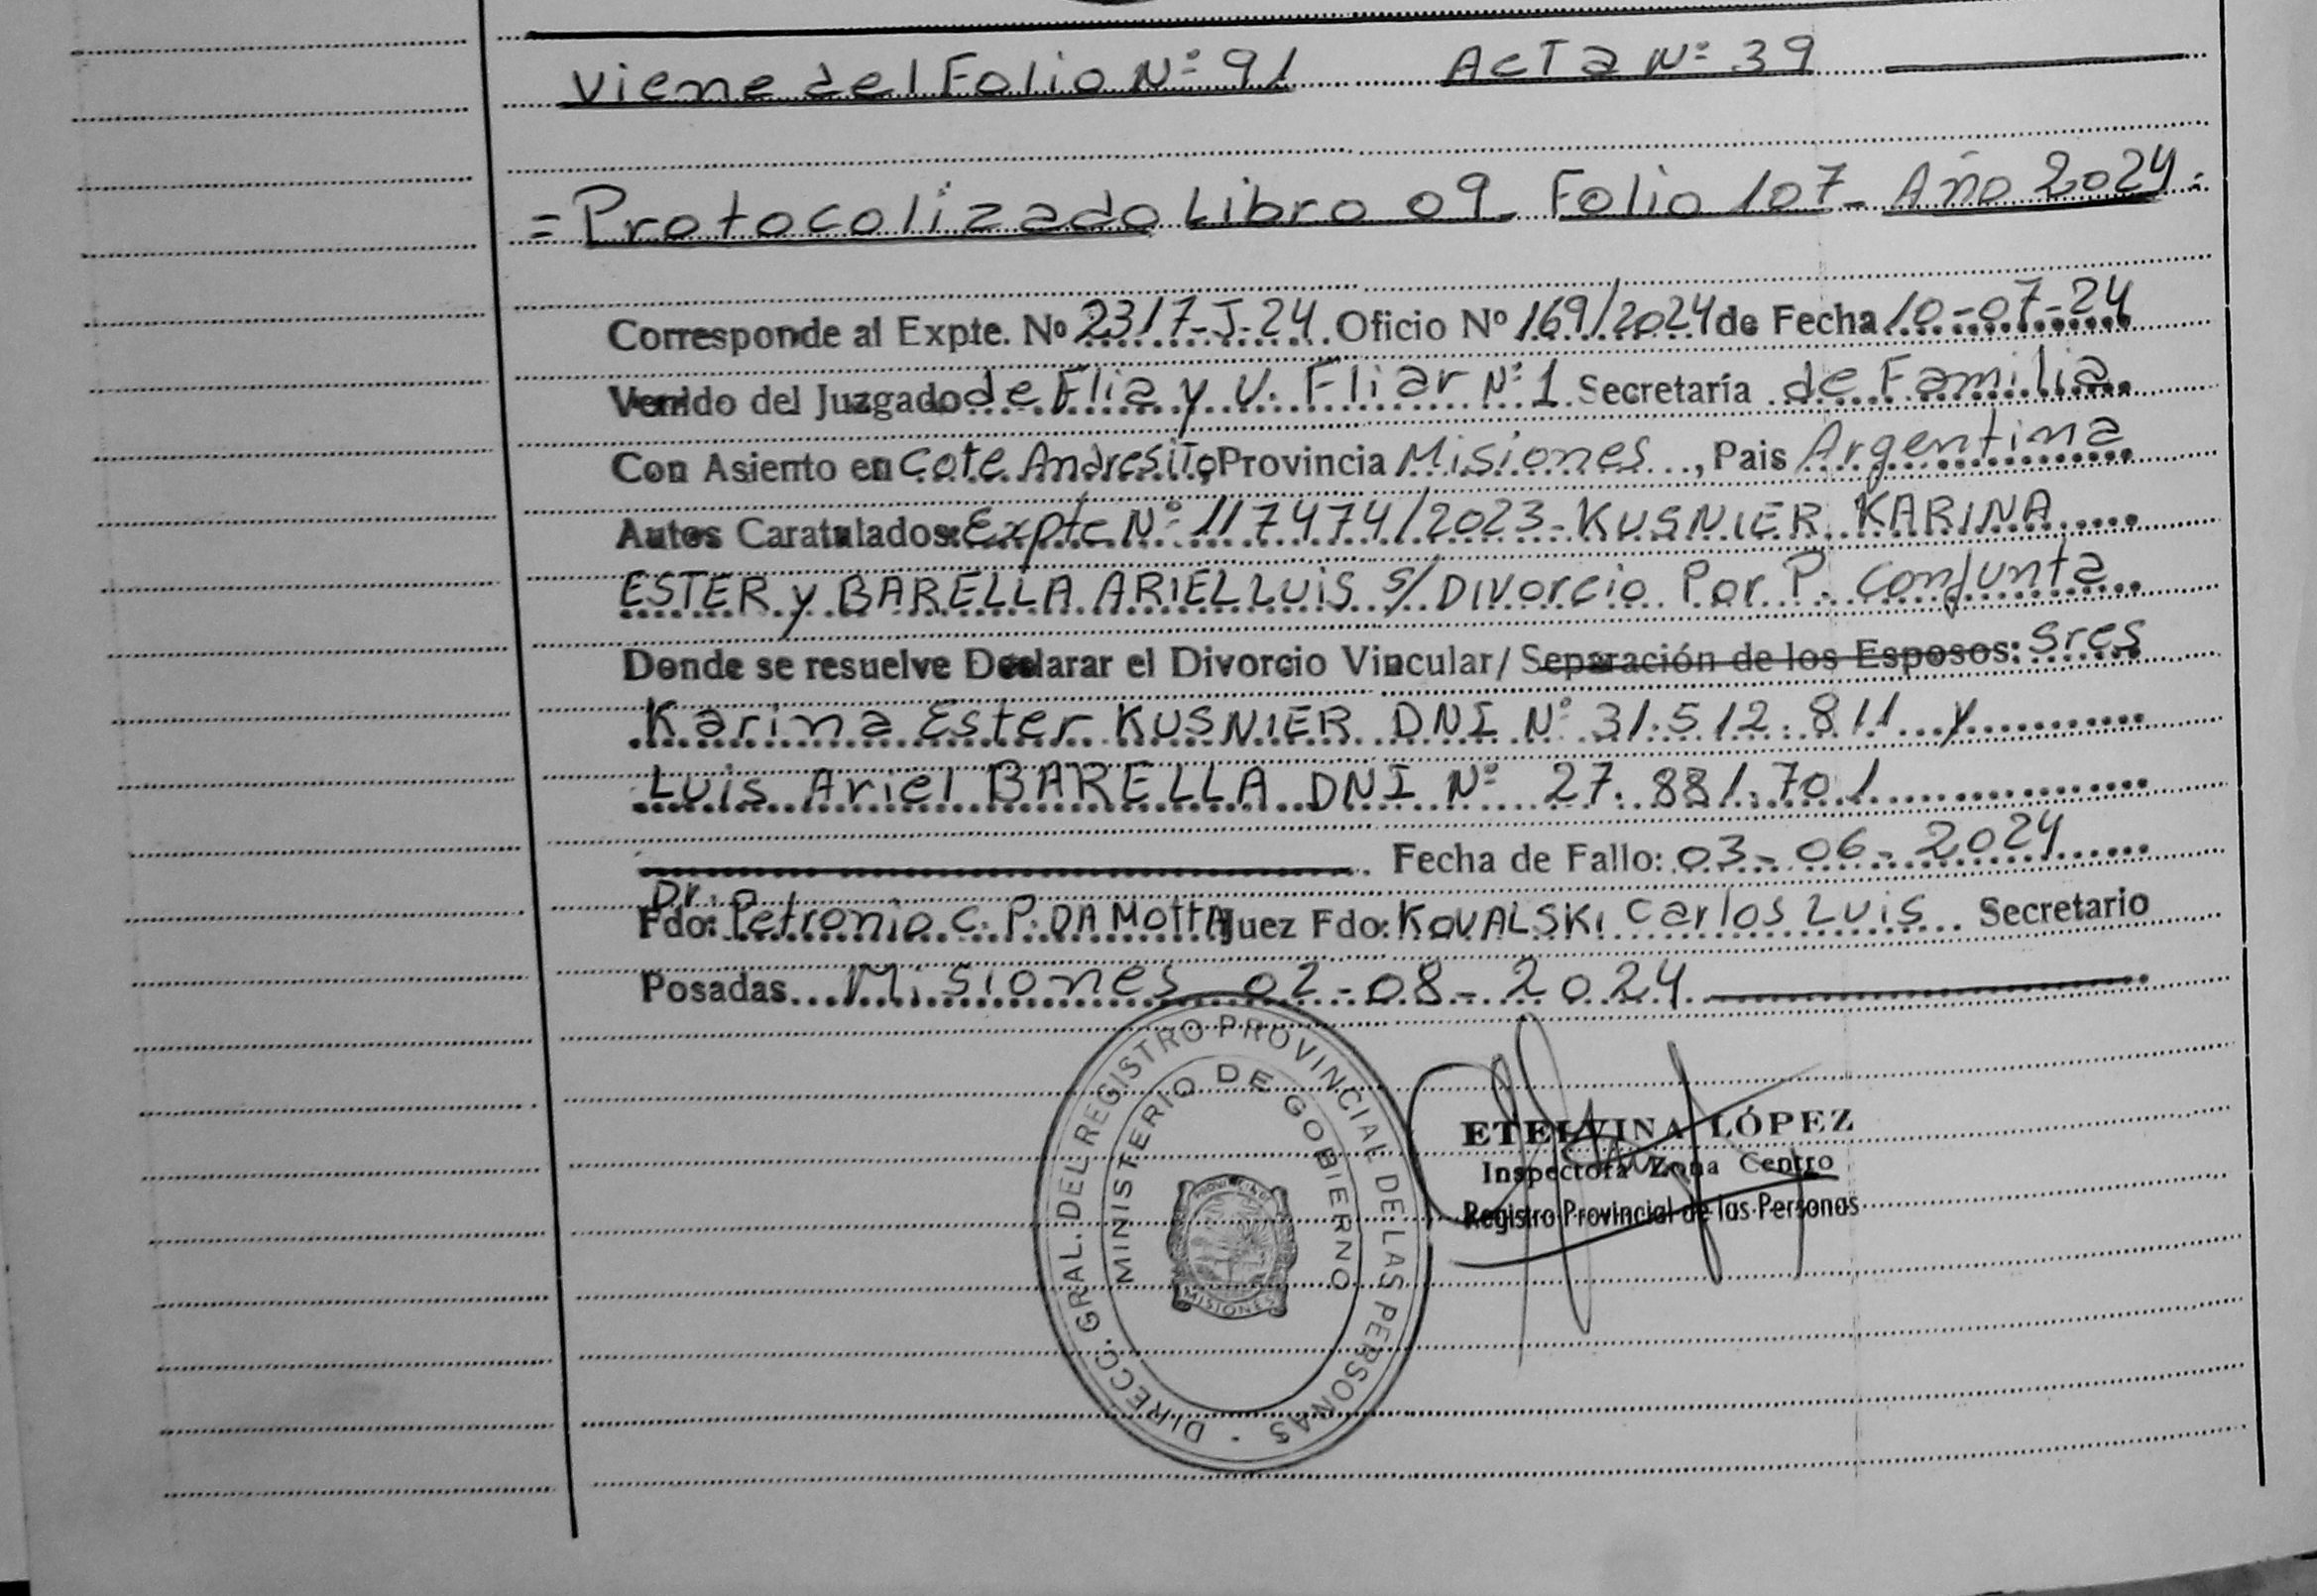 Viene del Folio Nº 91 Acta Nº 39
= Protocolizado Libro 09 - Folio 107 - Año 2024 =
Corresponde al Expte. Nº 2317-J-24. Oficio Nº 169/2024 de Fecha 10-07-24
Venido del Juzgado de Flia y V. Fliar Nº 1 Secretaría de Familia
Con Asiento en Cote. Andresito, Provincia Misiones, Pais Argentina
Autos Caratulados: Expte Nº 117474/2023 - KUSNIER KARINA
ESTER y BARELLA ARIEL LUIS s/ Divorcio Por P. Conjunta
Donde se resuelve Declarar el Divorcio Vincular/ Separación de los Esposos: Sres
Karina Ester KUSNIER DNI Nº 31.512.811 y
Luis Ariel BARELLA DNI Nº 27.881.701
Fecha de Fallo: 03-06-2024
Dr.
Fdo: Petronio C. P. DA MOTTA Juez Fdo: KOVALSKI Carlos Luis Secretario
Posadas Misiones 02-08-2024
DIRECC. GRAL. DEL REGISTRO PROVINCIAL DE LAS PERSONAS
MINISTERIO DE GOBIERNO
PROVINCIA DE
MISIONES
ETELVINA LÓPEZ
Inspectora Zona Centro
Registro Provincial de las Personas